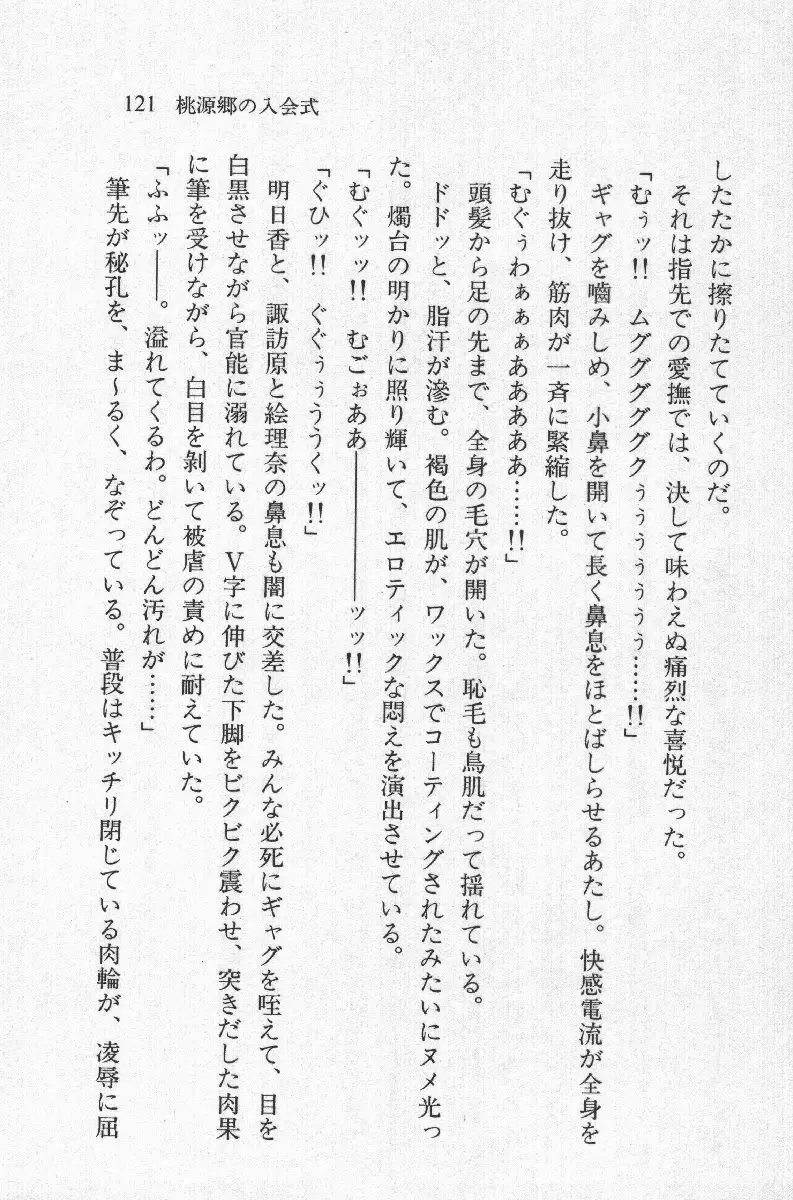 121 桃源郷の入会式
したたかに擦りたてていくのだ。
それは指先での愛撫では、決して味わえぬ痛烈な喜悦だった。
「むぅッ!! ムググググググクぅぅぅぅぅぅ……!!」
ギャグを嚙みしめ、小鼻を開いて長く鼻息をほとばしらせるあたし。快感電流が全身を
走り抜け、筋肉が一斉に緊縮した。
「むぐぅわぁぁぁああああ……!!」
頭髪から足の先まで、全身の毛穴が開いた。恥毛も鳥肌だって揺れている。
ドドッと、脂汗が滲む。褐色の肌が、ワックスでコーティングされたみたいにヌメ光っ
た。燭台の明かりに照り輝いて、エロティックな悶えを演出させている。
「むぐッッ!! むごぉああ――――――ッッ!!」
「ぐひッ!! ぐぐぅぅううくッ!!」
明日香と、諏訪原と絵理奈の鼻息も闇に交差した。みんな必死にギャグを咥えて、目を
白黒させながら官能に溺れている。V字に伸びた下脚をビクビク震わせ、突きだした肉果
に筆を受けながら、白目を剝いて被虐の責めに耐えていた。
「ふふッ――。溢れてくるわ。どんどん汚れが……」
筆先が秘孔を、ま〜るく、なぞっている。普段はキッチリ閉じている肉輪が、凌辱に屈